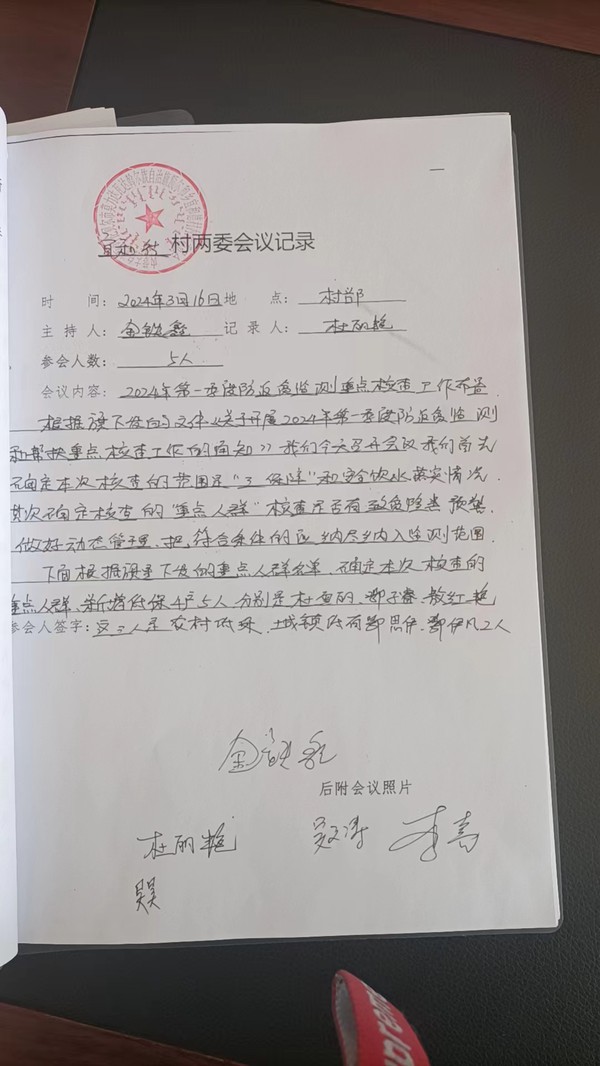 宜和村 村两委会议记录
时 间: 2024年3月16日 地 点: 村部
主 持 人: 记 录 人: 杜丽艳
参会人数: 5人
会议内容: 2024年第一季度防返贫监测重点核查工作布置
根据旗下发的文件《关于开展2024年第一季度防返贫监测
和帮扶重点核查工作的通知》我们今天召开会议我们首先
确定本次核查的范围是"三保障"和安全饮水落实情况
其次确定核查的"重点人群"核查是否有致贫险类预禁.
做好动态管理、把符合条件的应纳尽纳入监测范围.
下面根据旗里下发的重点人群名单、确定本次核查的
重点人群、新增低保4户5人分别是杜 鄂 敖红艳
参会人签字: 这三人是农村低保、城镇低保鄂思伊、鄂伊凡2人
后附会议照片
杜丽艳 李